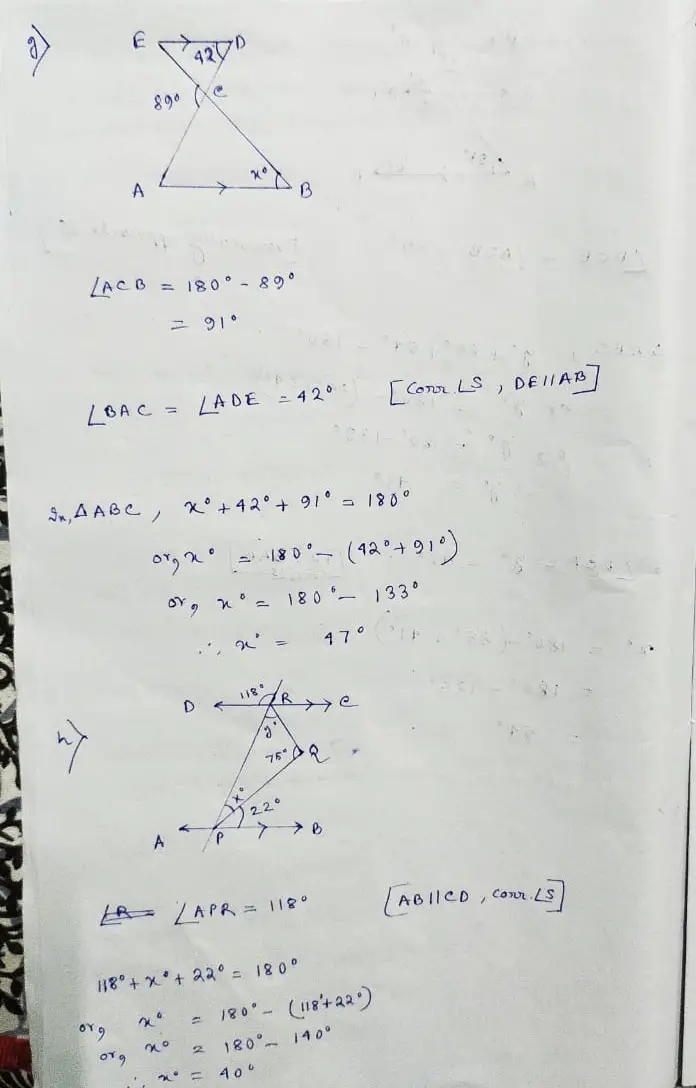 g)
E D
42°
89° C
x°
A B
∠ACB = 180° - 89°
= 91°
∠BAC = ∠ADE = 42° [Corr. ∠S , DE//AB]
In, ΔABC, x° + 42° + 91° = 180°
or, x° = 180° - (42° + 91°)
or, x° = 180° - 133°
∴ x° = 47°
h)
118°
D R C
y°
75° Q
x°
22°
A P B
∠APR = 118° [AB//CD , corr. ∠S]
118° + x° + 22° = 180°
or, x° = 180° - (118° + 22°)
or, x° = 180° - 140°
∴ x° = 40°